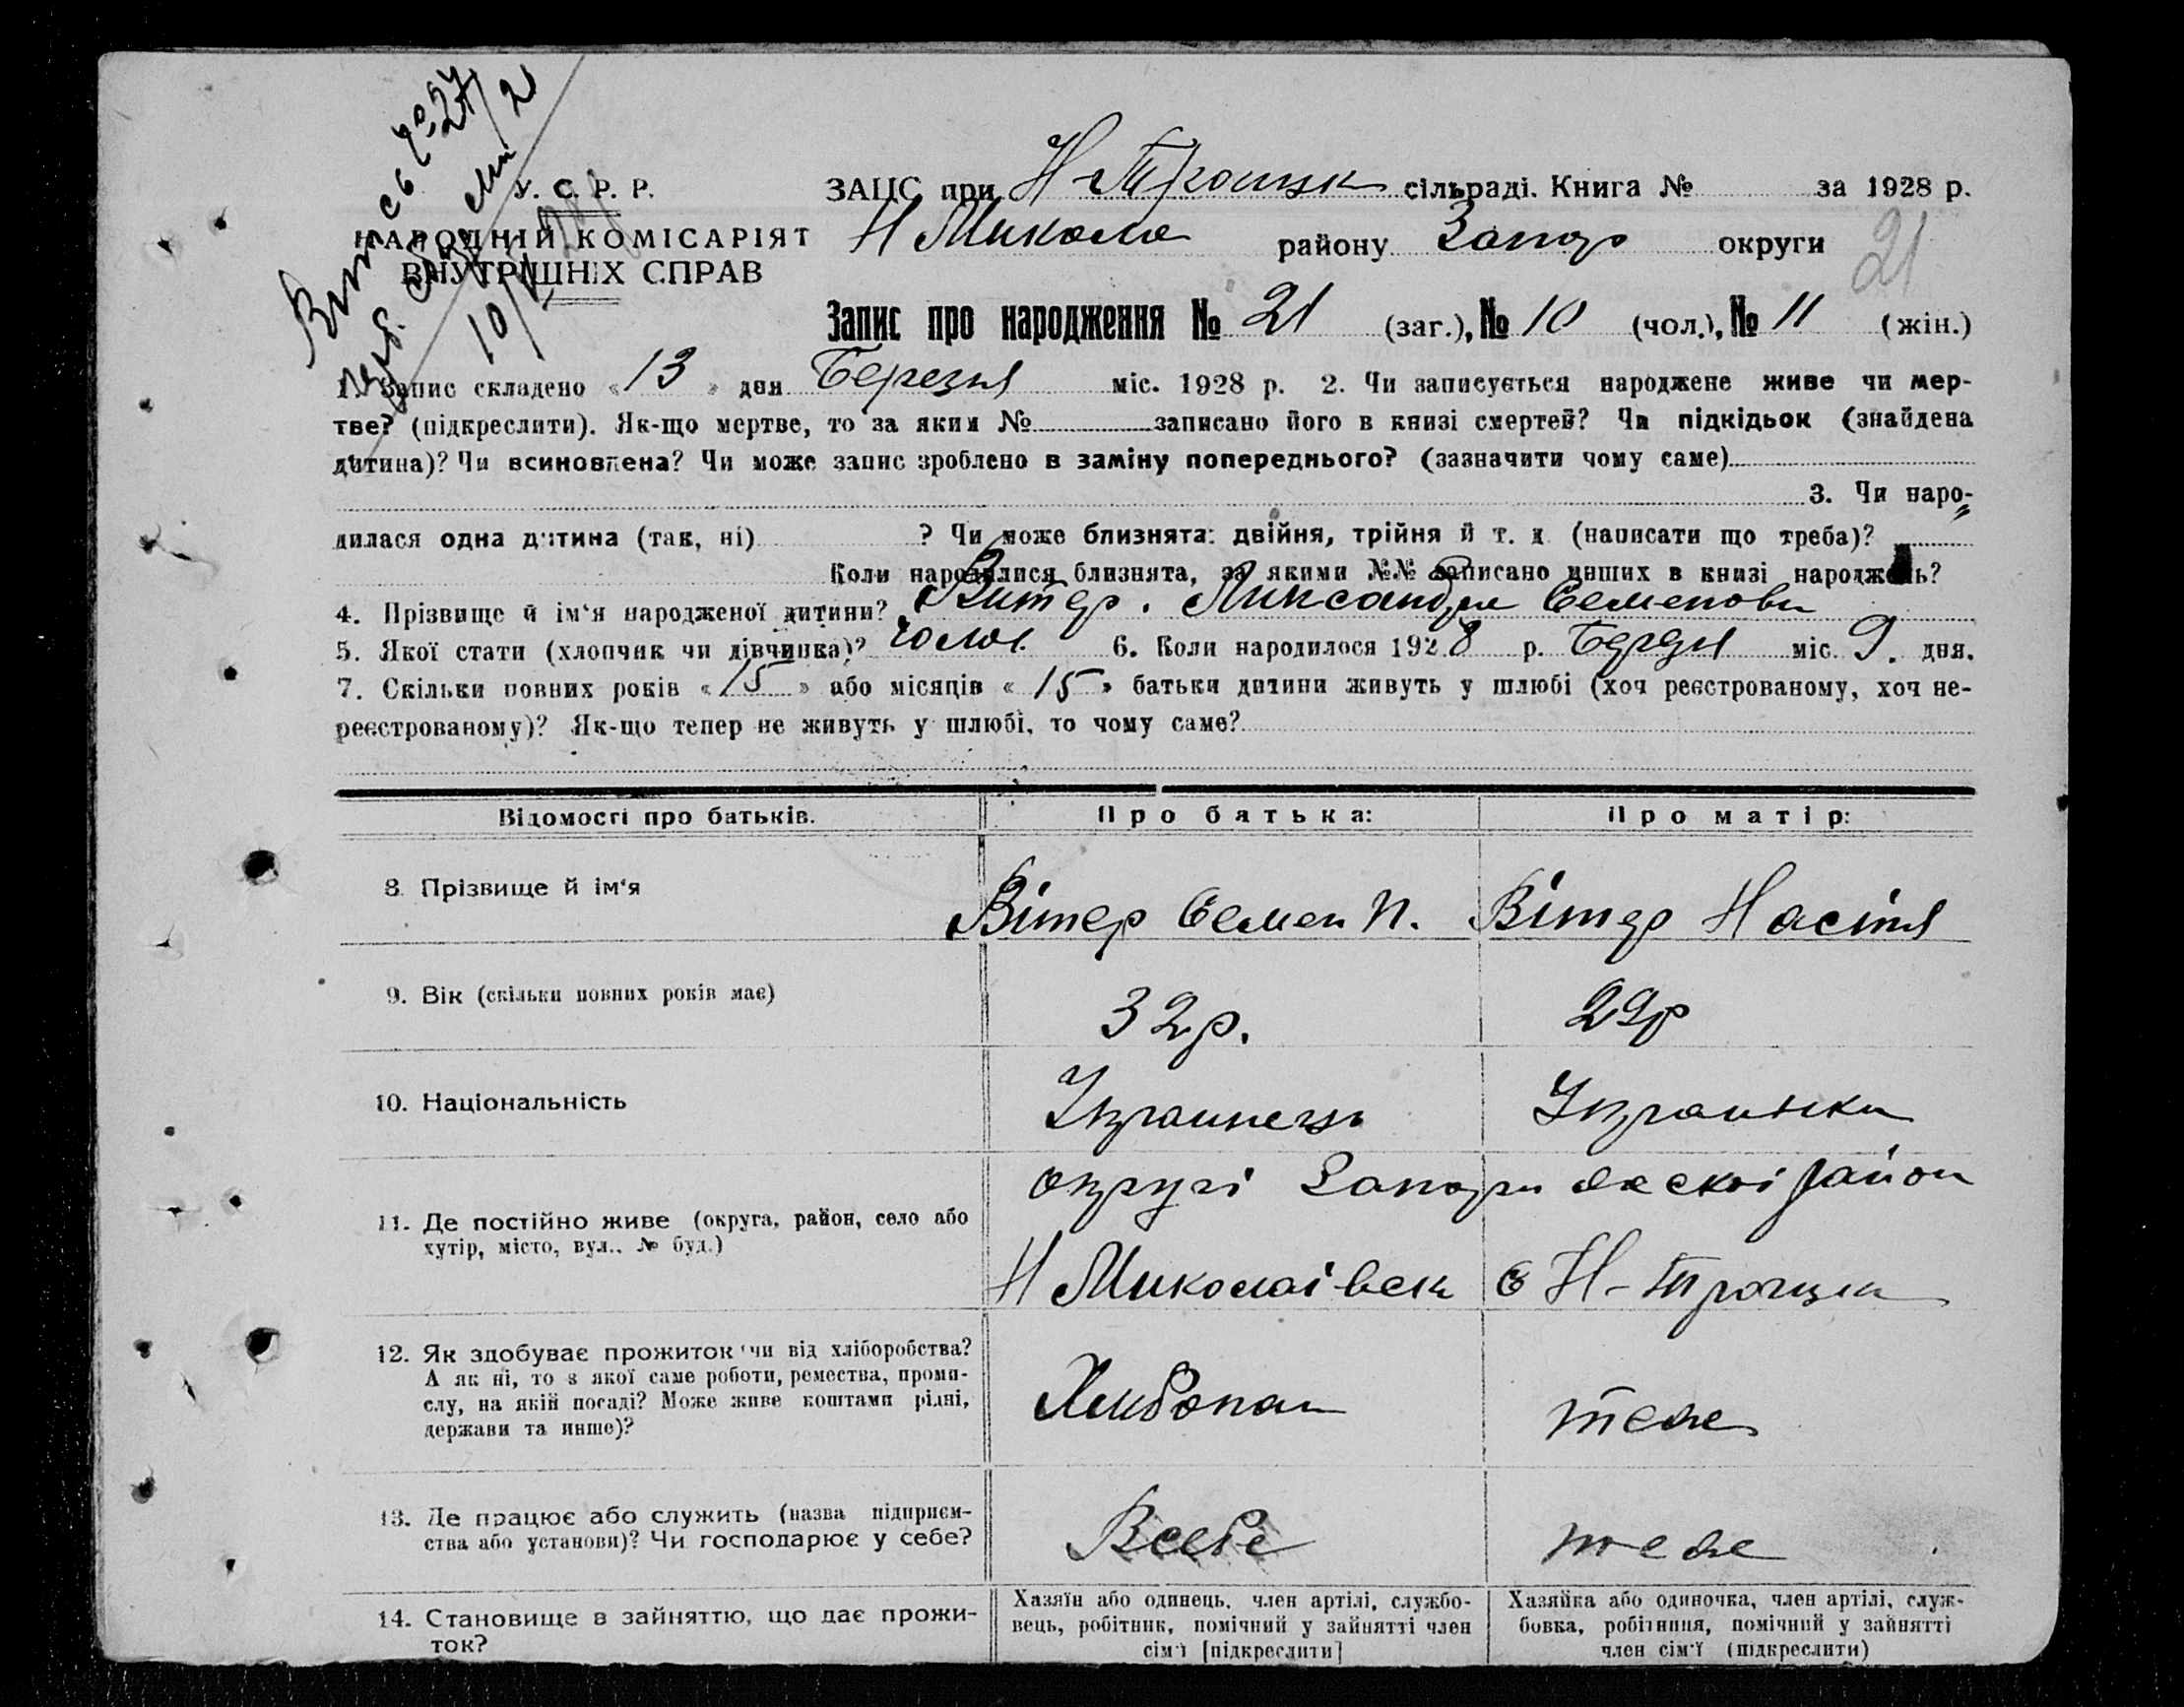 У. С. Р. Р.
НАРОДНІЙ КОМІСАРІЯТ
ВНУТРІШНІХ СПРАВ
ЗАЦС при Н-Троицк сільраді. Книга № за 1928 р.
Н Микола району Запор округи
21
Запис про народження № 21 (заг.), № 10 (чол.), № 11 (жін.)
1. Запис складено « 13 » дня Березня міс. 1928 р. 2. Чи записується народжене живе чи мер-
тве? (підкреслити). Як-що мертве, то за яким № записано його в книзі смертей? Чи підкідьок (знайдена
дитина)? Чи всиновлена? Чи може запис зроблено в заміну попереднього? (зазначити чому саме)
3. Чи наро-
дилася одна дитина (так, ні) ? Чи може близнята: двійня, трійня й т. д (написати що треба)?
Коли народилися близнята, за якими №№ записано инших в книзі народжень?
4. Прізвище й ім'я народженої дитини? Витер. Александра Семенови
5. Якої стати (хлопчик чи дівчинка)? 6. Коли народилося 1928 р. міс. 9. дня.
7. Скільки повних років « 15 » або місяців « 15 » батьки дитини живуть у шлюбі (хоч реєстрованому, хоч не-
реєстрованому)? Як-що тепер не живуть у шлюбі, то чому саме?
Відомості про батьків. Про батька: Про матір:
8. Прізвище й ім'я Вітер Семен П. Вітер Настя
9. Вік (скільки повних років має) 32р. 29р
10. Національність Украинець Украинка
округі район
11. Де постійно живе (округа, район, село або
хутір, місто, вул.. № буд.)
Н Миколаівск с Н-Троицка
12. Як здобуває прожиток чи від хліборобства?
А як ні, то з якої саме роботи, ремества, проми-
слу, на якій посаді? Може живе коштами рідні,
держави та инше)?
Хлибопаш теже
13. Де працює або служить (назва підприєм-
ства або установи)? Чи господарює у себе?
Всебе теже
14. Становище в зайняттю, що дає прожи-
ток?
Хазяїн або одинець, член артілі, службо-
вець, робітник, помічний у зайнятті член
сім'ї [підкреслити]
Хазяйка або одиночка, член артілі, служ-
бовка, робітниця, помічний у зайнятті
член сім'ї (підкреслити)